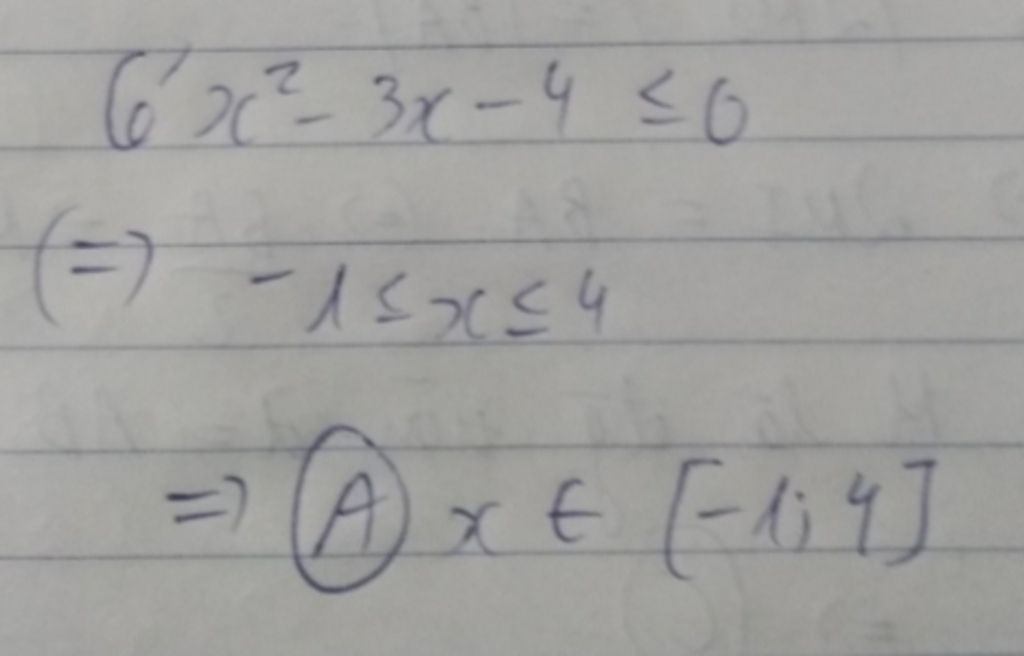 6' x² - 3x - 4 ≤ 0
(=) -1 ≤ x ≤ 4
=> A x ∈ [-1; 4]